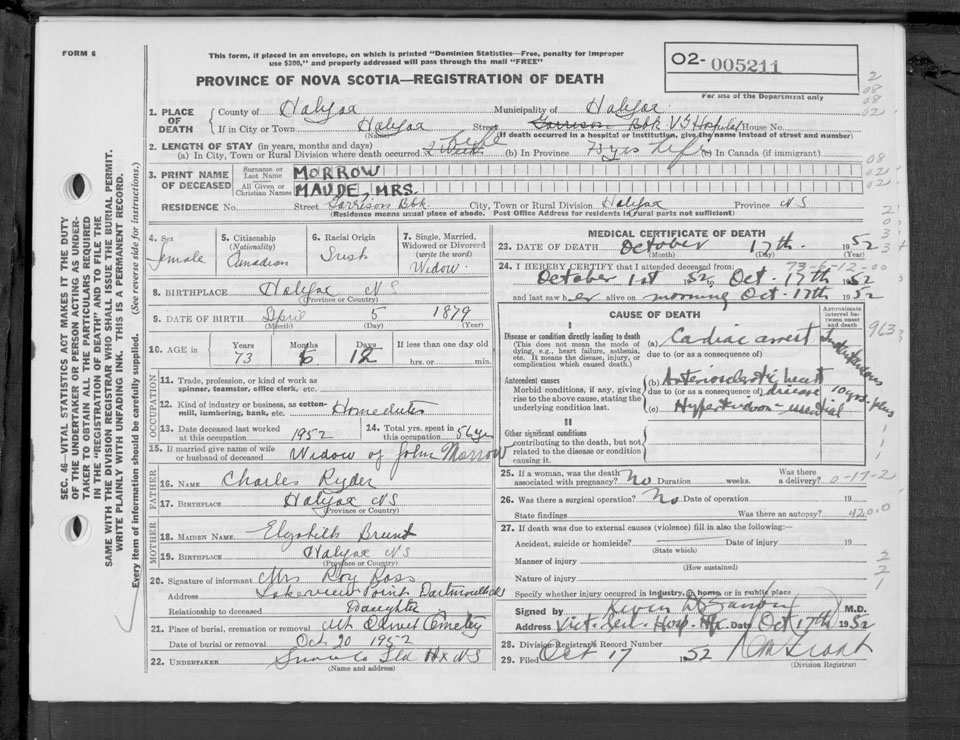 FORM 6
This form, if placed in an envelope, on which is printed "Dominion Statistics—Free, penalty for improper
use $300," and properly addressed will pass through the mail "FREE"
02- 005211
For use of the Department only
PROVINCE OF NOVA SCOTIA—REGISTRATION OF DEATH
1. PLACE OF DEATH
County of Halifax Municipality of Halifax
If in City or Town Halifax Street Garrison Bbk. VG Hospital House No.
(Name) (If death occurred in a hospital or institution, give the name instead of street and number)
2. LENGTH OF STAY (in years, months and days)
(a) In City, Town or Rural Division where death occurred 2 Weeks Life (b) In Province 73 yrs life (c) In Canada (if immigrant)
3. PRINT NAME OF DECEASED
Surname or Last Name MORROW
All Given or Christian Names MAUDE, MRS.
RESIDENCE No. Street Garrison Bbk. City, Town or Rural Division Halifax Province NS
(Residence means usual place of abode. Post Office Address for residents in rural parts not sufficient)
4. Sex female
5. Citizenship (Nationality) Canadian
6. Racial Origin Irish
7. Single, Married, Widowed or Divorced (write the word) Widow
8. BIRTHPLACE Halifax NS
(Province or Country)
9. DATE OF BIRTH April 5 1879
(Month) (Day) (Year)
10. AGE in Years 73 Months 6 Days 12 If less than one day old hrs. or min.
OCCUPATION
11. Trade, profession, or kind of work as spinner, teamster, office clerk, etc.
12. Kind of industry or business, as cotton-mill, lumbering, bank, etc. Homeduties
13. Date deceased last worked at this occupation 1952
14. Total yrs. spent in this occupation 56 yrs
15. If married give name of wife or husband of deceased Widow of John Morrow
FATHER
16. NAME Charles Ryder
17. BIRTHPLACE Halifax NS
(Province or Country)
MOTHER
18. MAIDEN NAME Elizabeth Brunt
19. BIRTHPLACE Halifax NS
(Province or Country)
20. Signature of informant Mrs Roy Ross
Address Lakeview Point Dartmouth NS
Relationship to deceased Daughter
21. Place of burial, cremation or removal Mt Olivet Cemetery
Date of burial or removal Oct 20 1952
22. UNDERTAKER Snow Co Ltd Hx NS
(Name and address)
MEDICAL CERTIFICATE OF DEATH
23. DATE OF DEATH October 17th 1952
(Month) (Day) (Year)
73-6-12-00
24. I HEREBY CERTIFY that I attended deceased from:
October 1st 1952 to Oct. 17th 1952
and last saw her alive on morning Oct. 17th 1952
CAUSE OF DEATH
Approximate interval between onset and death
I
Disease or condition directly leading to death
(This does not mean the mode of dying, e.g., heart failure, asthenia, etc. It means the disease, injury, or complication which caused death.)
(a) Cardiac arrest Instantaneous
due to (or as a consequence of)
Antecedent causes
Morbid conditions, if any, giving rise to the above cause, stating the underlying condition last.
(b) Arteriosclerotic heart disease 10 yrs. plus
due to (or as a consequence of)
(c) Hypertension - essential
II
Other significant conditions
contributing to the death, but not related to the disease or condition causing it.
25. If a woman, was the death associated with pregnancy? No Duration weeks. Was there a delivery? 0-17-2
26. Was there a surgical operation? No Date of operation 19
State findings Was there an autopsy? 420.0
27. If death was due to external causes (violence) fill in also the following:—
Accident, suicide or homicide? Date of injury 19
(State which)
Manner of injury
(How sustained)
Nature of injury
Specify whether injury occurred in industry, in home, or in public place
Signed by Kevin M.D.
Address Vict. Gen. Hosp. Hfx Date Oct 17th 1952
28. Division Registrar's Record Number
29. Filed Oct 17 1952
(Division Registrar)
SEC. 46—VITAL STATISTICS ACT MAKES IT THE DUTY
OF THE UNDERTAKER OR PERSON ACTING AS UNDER-
TAKER TO OBTAIN ALL THE PARTICULARS REQUIRED
IN THE "REGISTRATION OF DEATH" AND TO FILE THE
SAME WITH THE DIVISION REGISTRAR WHO SHALL ISSUE THE BURIAL PERMIT.
WRITE PLAINLY WITH UNFADING INK. THIS IS A PERMANENT RECORD.
Every item of information should be carefully supplied. (See reverse side for instructions.)